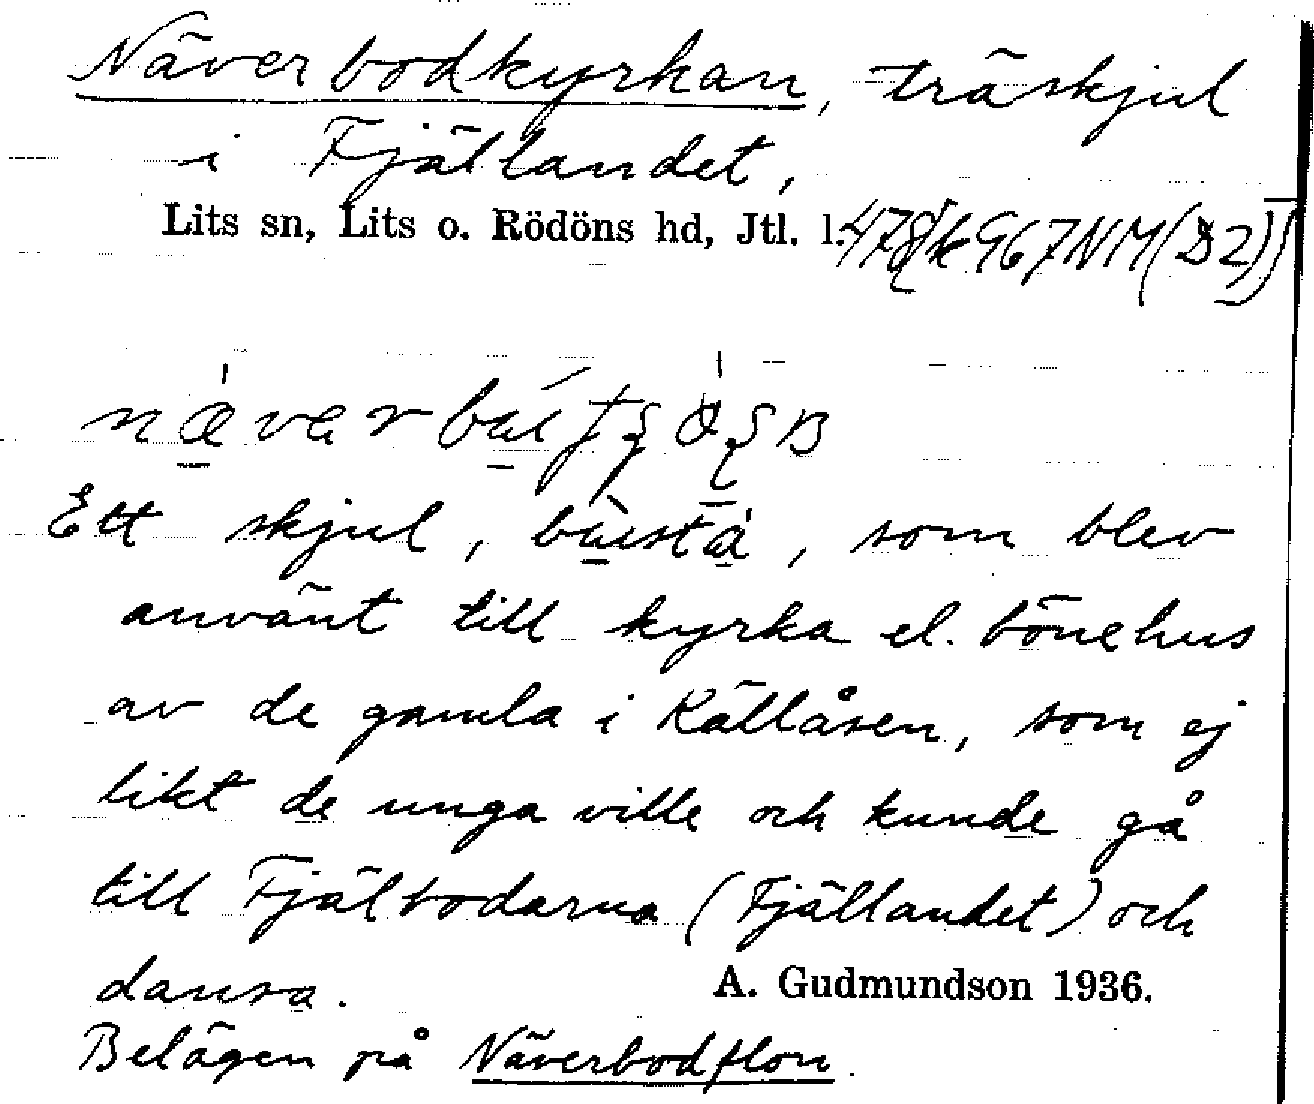 Näverbodkyrkan, träskjul
i Fjällandet,
Lits sn, Lits o. Rödöns hd, Jtl. l.
Ett skjul, som blev
använt till kyrka el. bönehus
av de gamla i Källåsen, som ej
likt de unga ville och kunde gå
till Fjälbodarna (Fjällandet) och
dansa. A. Gudmundson 1936.
Belägen på Näverbodflon.